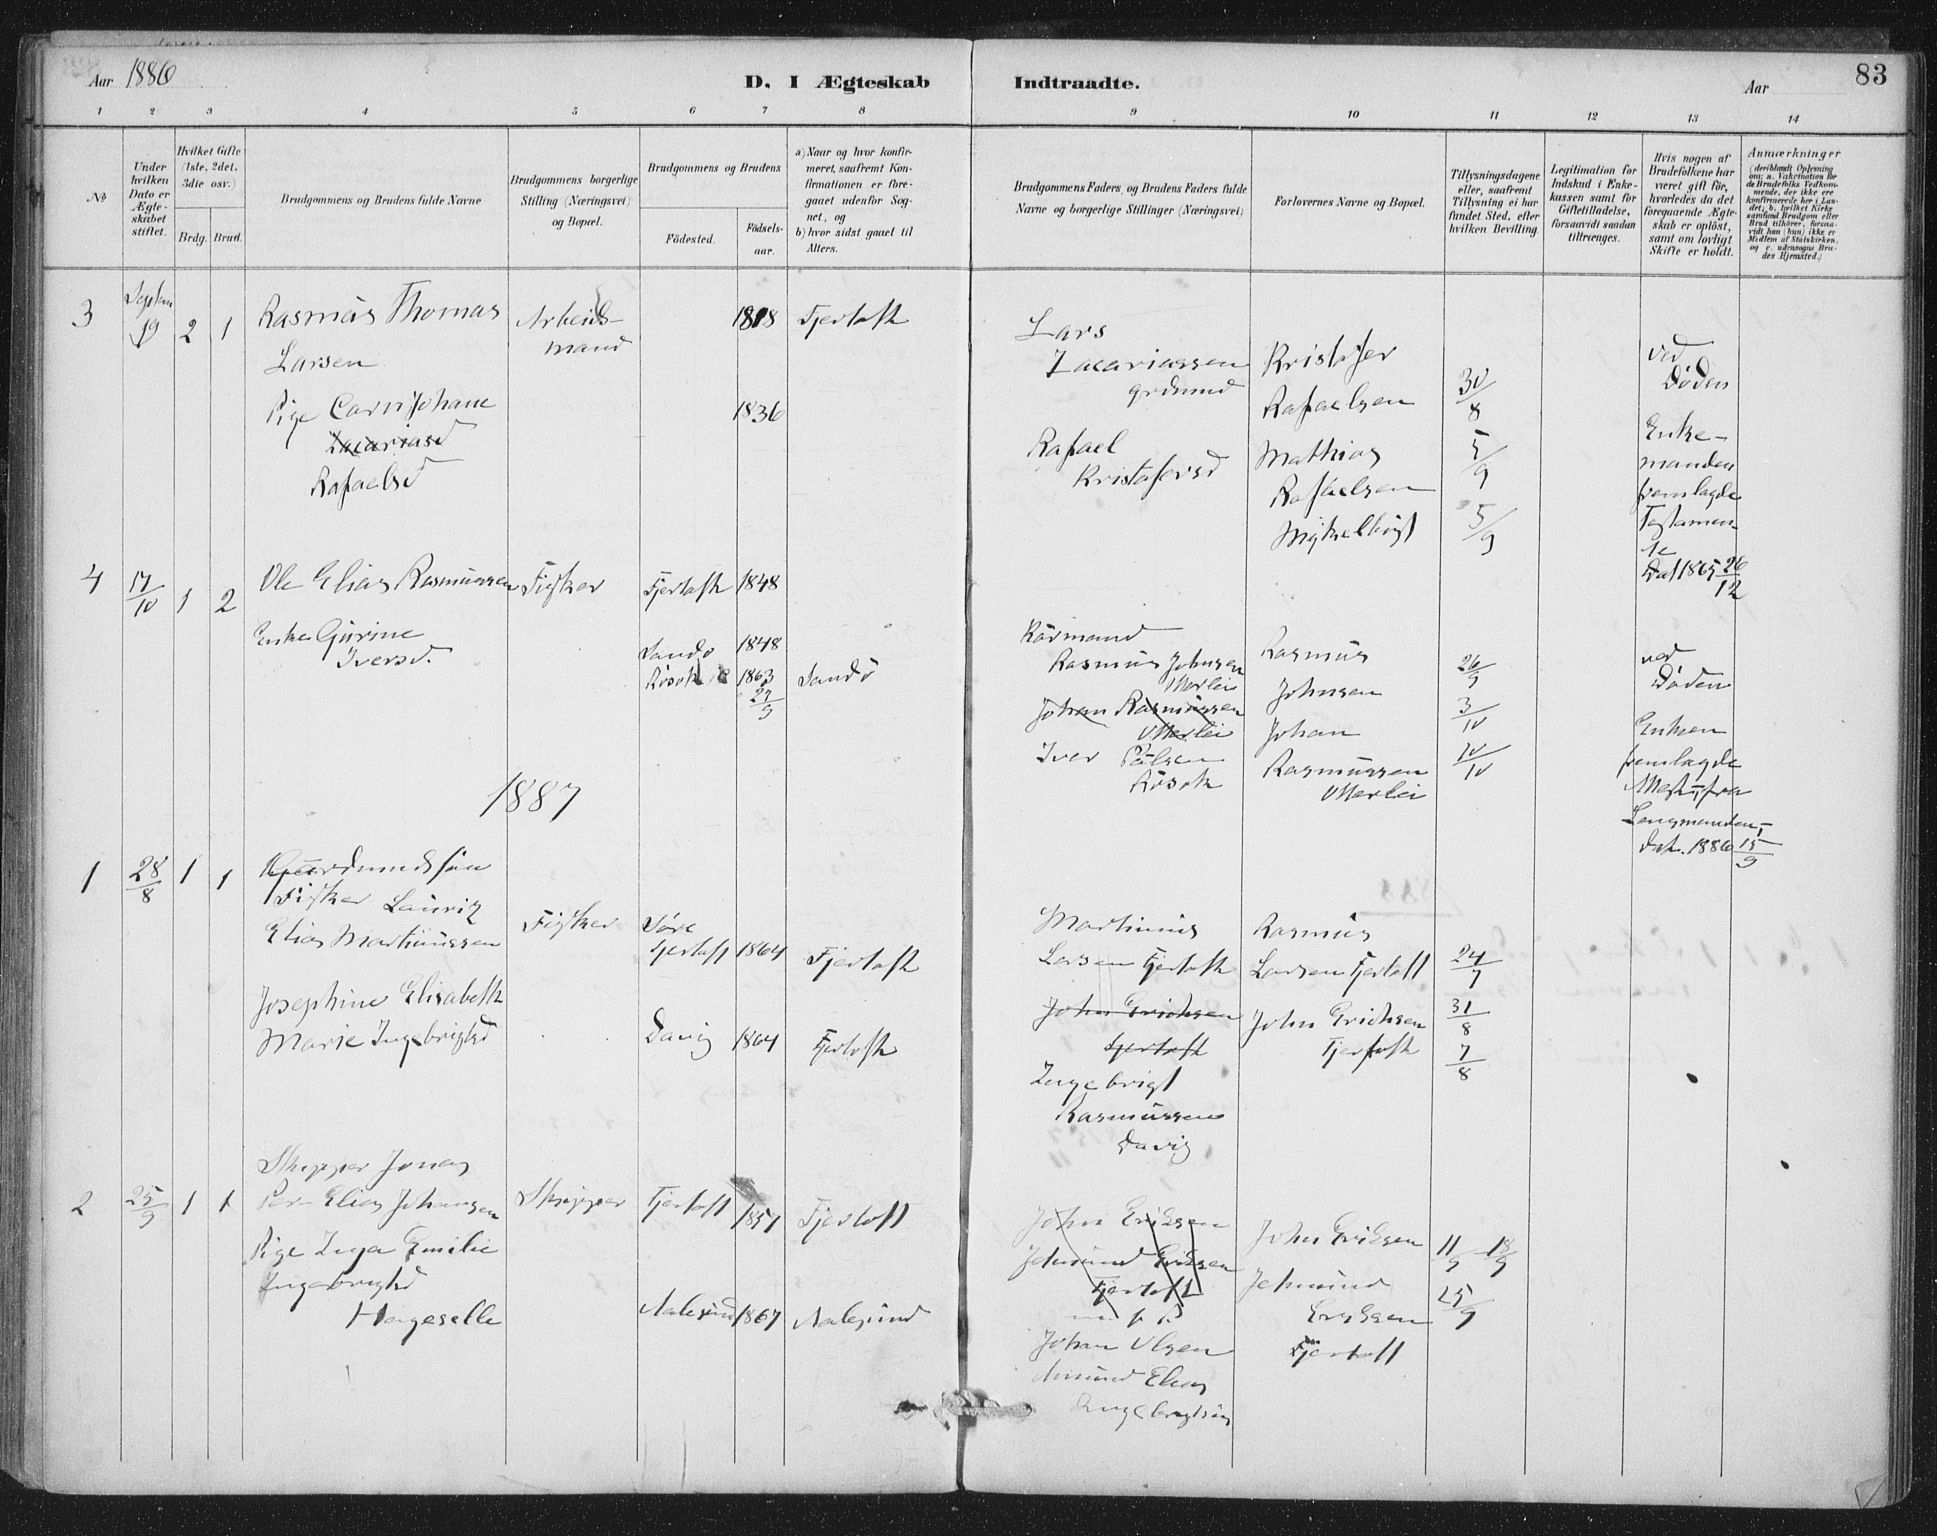 Aar 1886
D. I Ægteskab
Indtraadte.
Aar
83
1 2 3 4 5 6 7 8 9 10 11 12 13 14
No
Under hvilken Dato er Ægteskabet stiftet.
Hvilket Gifte (1ste, 2det, 3die osv.)
Brdg. Brud.
Brudgommens og Brudens fulde Navne
Brudgommens borgerlige Stilling (Næringsvei) og Bopæl.
Brudgommens og Brudens
Fødested.
Fødsels-aar.
a) Naar og hvor konfirmeret, saafremt Konfirmationen er foregaaet udenfor Sognet, og
b) hvor sidst gaaet til Alters.
Brudgommens Faders og Brudens Faders fulde Navne og borgerlige Stillinger (Næringsvei)
Forlovernes Navne og Bopæl.
Tillysningsdagene eller, saafremt Tillysning ei har fundet Sted, efter hvilken Bevilling.
Legitimation for Indskud i Enkekassen samt for Giftetilladelse, forsaavidt saadan tiltrænges.
Hvis nogen af Brudefolkene har været gift før, hvorledes da det foregaaende Ægteskab er opløst, samt om lovligt Skifte er holdt.
Anmærkninger
3 Septem 19 2 1
Rasmus Thomas
Larsen
Pige Carn Johane
Zacariasd
Rafaelsd
Arbeids-
mand
1818
1836
Fjertoft
Lars
Zacariassen
grdmnd
Rafael
Kristofersd
Kristofer
Rafaelsen
Mathias
Rafaelsen
30/8
5/9
5/9
ved
Døden
Enke-
manden
fremlagde
Testamen
te
Dat 1865 26/12
4 17/10 1 2
Ole Elias Rasmussen
Enke Gurine
Iversd.
Fisker
Fjertoft 1848
Sandø 1848
Røsok 1863
27/9
Sandø
Kårmand
Rasmus Johnsen
Ulterlei
Johan Rasmussen
Ulterlei
Iver Pålsen
Røsok
Rasmus
Johnsen
Johan
Rasmussen
Ulterlei
26/9
3/10
10/10
ved
Døden
Enken
fremlagde
Attest fra
Lensmanden,
dat. 1886 15/9
1887
1 28/8 1 1
Gaardmandssøn
Fisker Lauritz
Elias Martinussen
Josephine Elisabeth
Marie Ingebrigtsd
Fisker
Søre
Fjertoft 1864
Davig 1864
Fjertoft
Fjertoft
Martinus
Larsen Fjertoft
John Erichsen
Fjertoft
Ingebrigt
Rasmussen
Davig
Rasmus
Larsen Fjertoft
John Erichsen
Fjertoft
24/7
31/8
7/8
2 25/9 1 1
Skipper Jonas
Per Elias Johansen
Pige Inga Emilie
Ingebrigtsd
Hageselle
Skipper
Fjertoft 1857
Aalesund 1867
Fjertoft
Aalesund
John Eriksen
Jetmund Eriksen
Fjertoft
Johan Olsen
Amund Elias
Ingebrigtsen
John Eriksen
Jetmund
Eriksen
Fjertoft
11/9 18/9
25/9